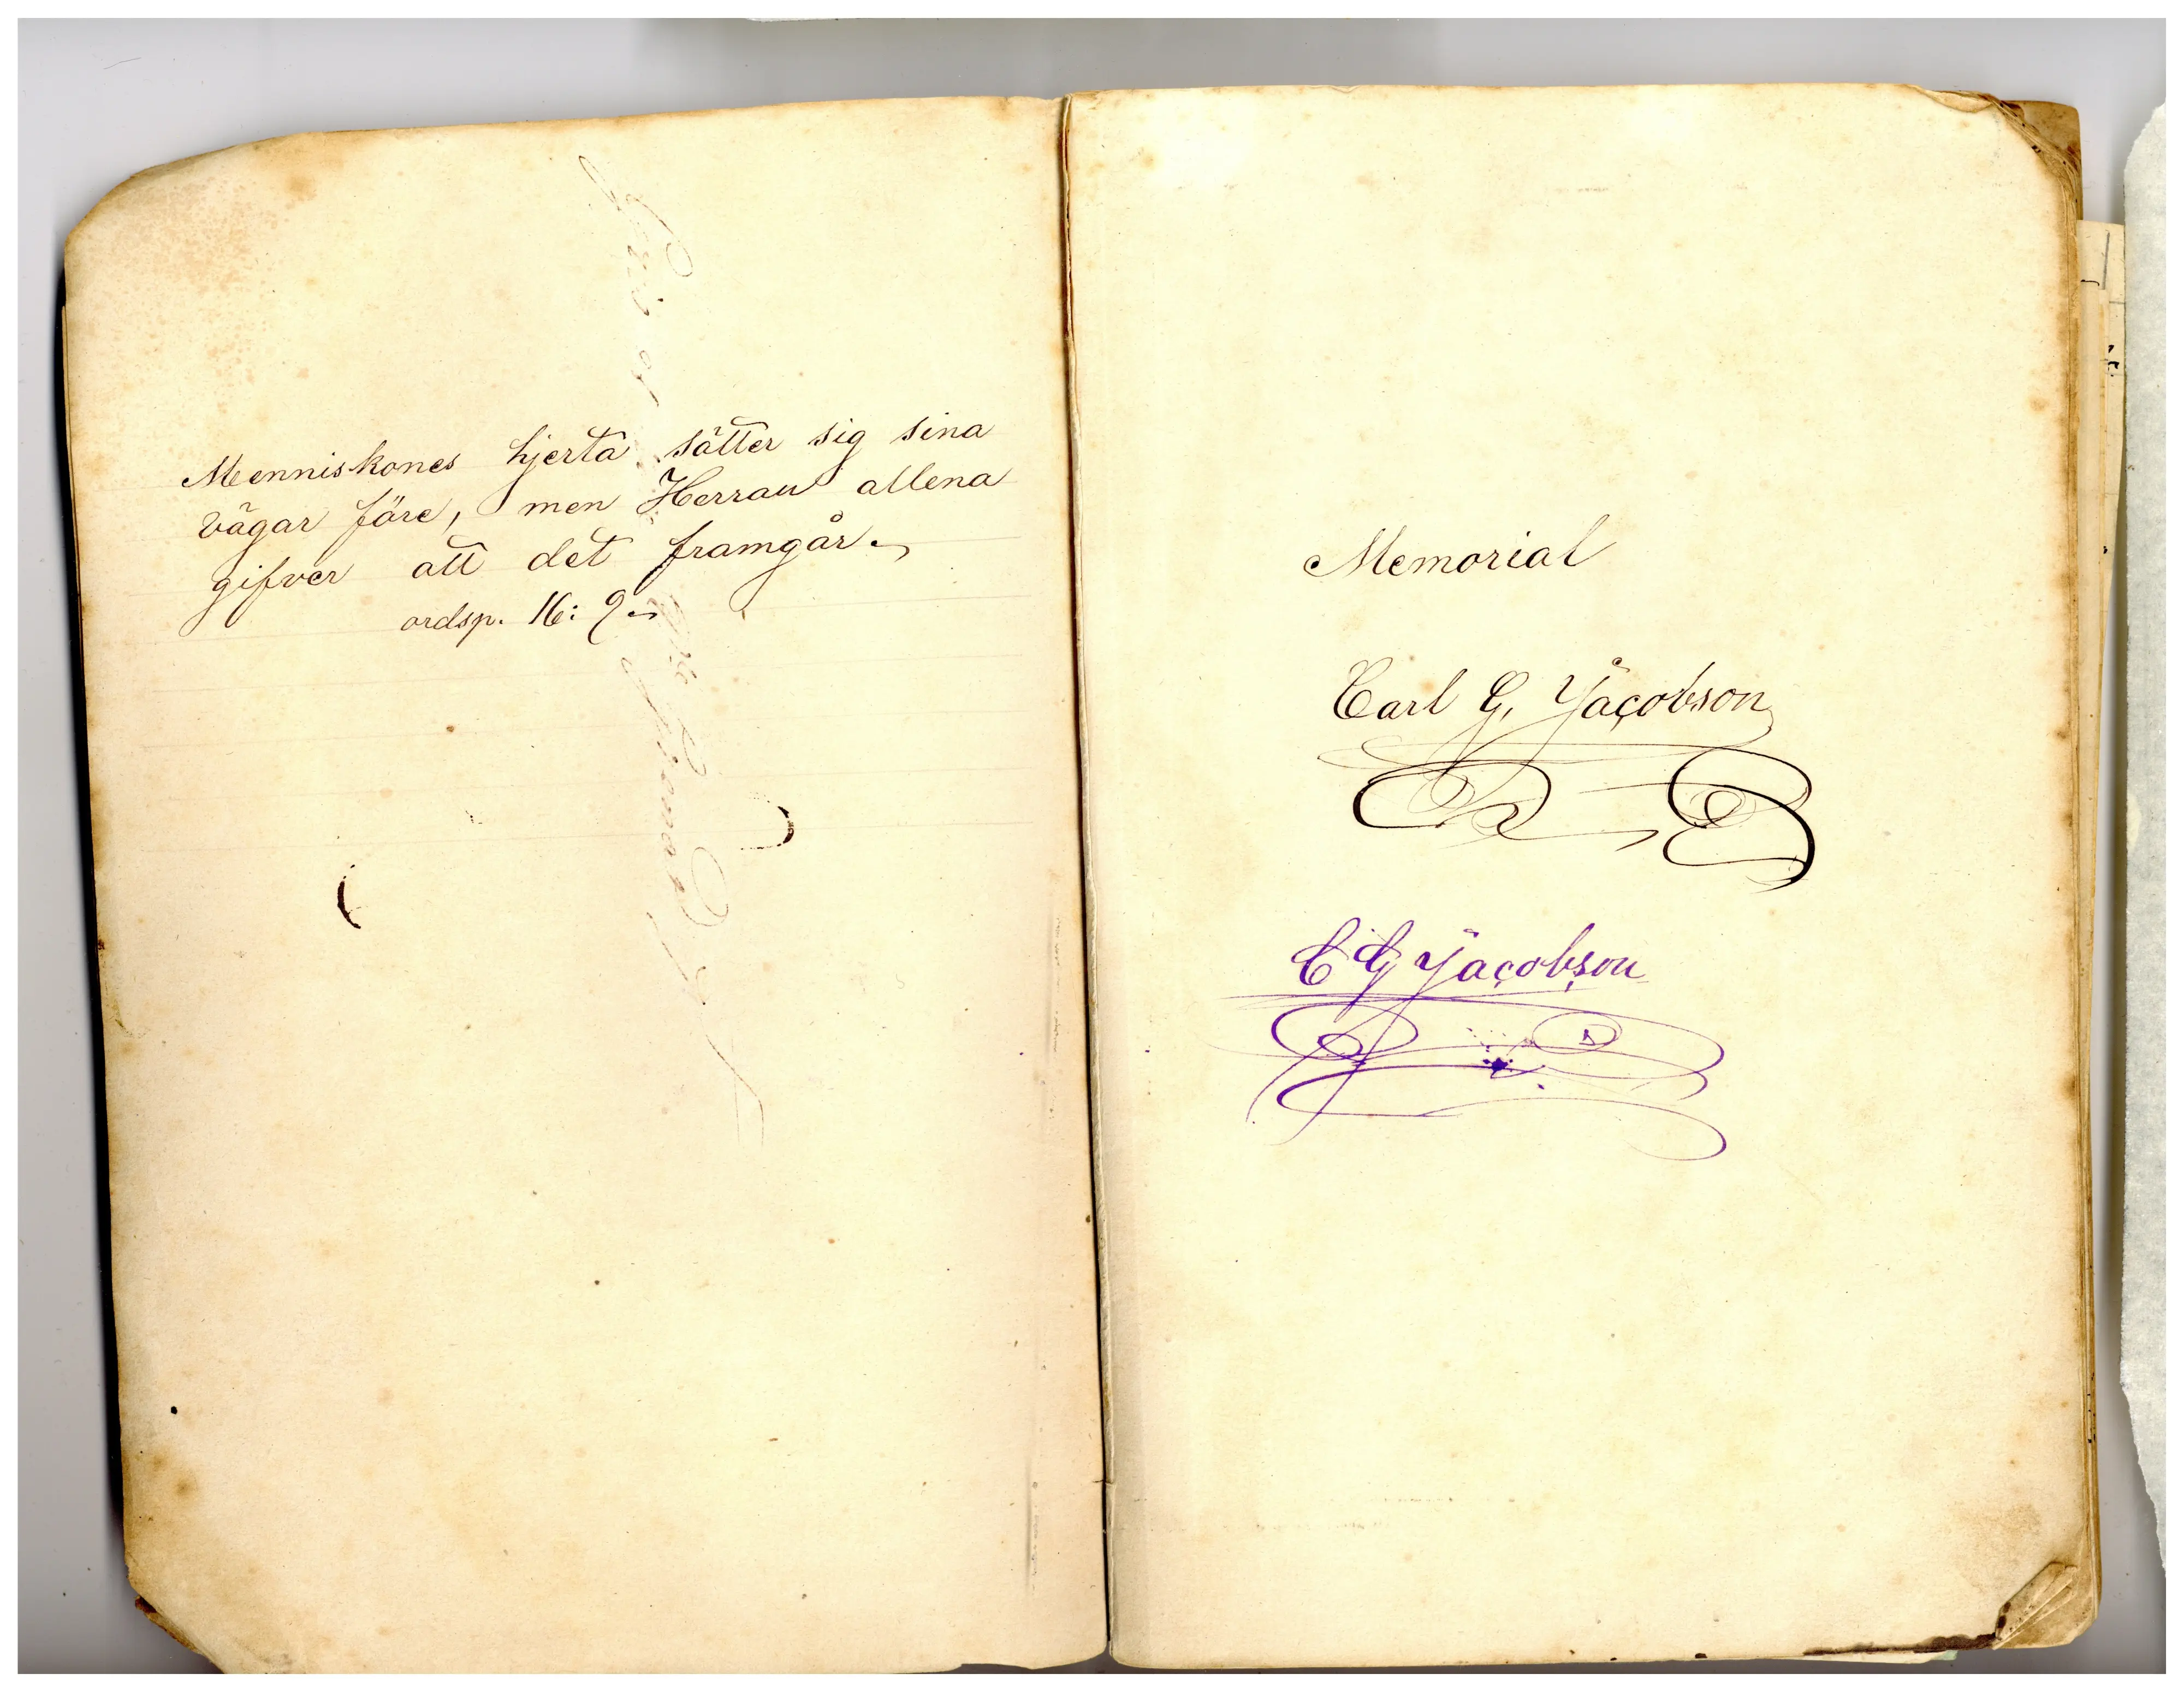 Menniskones hjerta sätter sig sina
vägar före, men Herran allena
gifver att det framgår.
ordsp. 16: 9
Memorial
Carl G. Jacobson
C G Jacobson